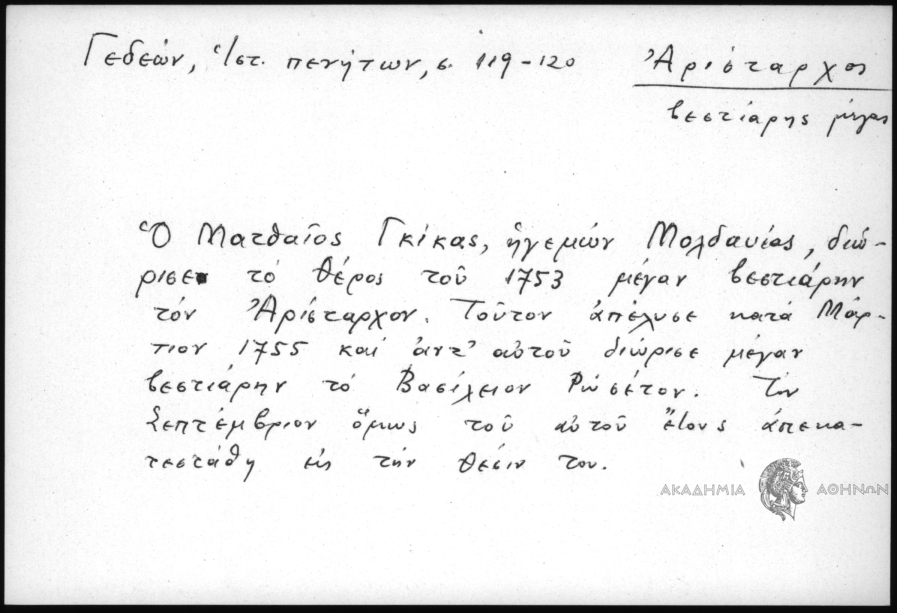 Γεδεών, Ἱστ. πενήτων, σ. 119-120
Ἀρίσταρχος
βεστιάρης μέγας
Ὁ Ματθαῖος Γκίκας, ἡγεμών Μολδαυίας, διώ-
ρισε τό θέρος τοῦ 1753 μέγαν βεστιάρην
τόν Ἀρίσταρχον. Τοῦτον ἀπέλυσε κατά Μάρ-
τιον 1755 καί ἀντ' αὐτοῦ διώρισε μέγαν
βεστιάρην τό Βασίλειον Ρωσέτον. Τόν
Σεπτέμβριον ὅμως τοῦ αὐτοῦ ἔτους ἀπεκα-
τεστάθη εἰς τήν θέσιν του.
ΑΚΑΔΗΜΙΑ ΑΘΗΝΩΝ